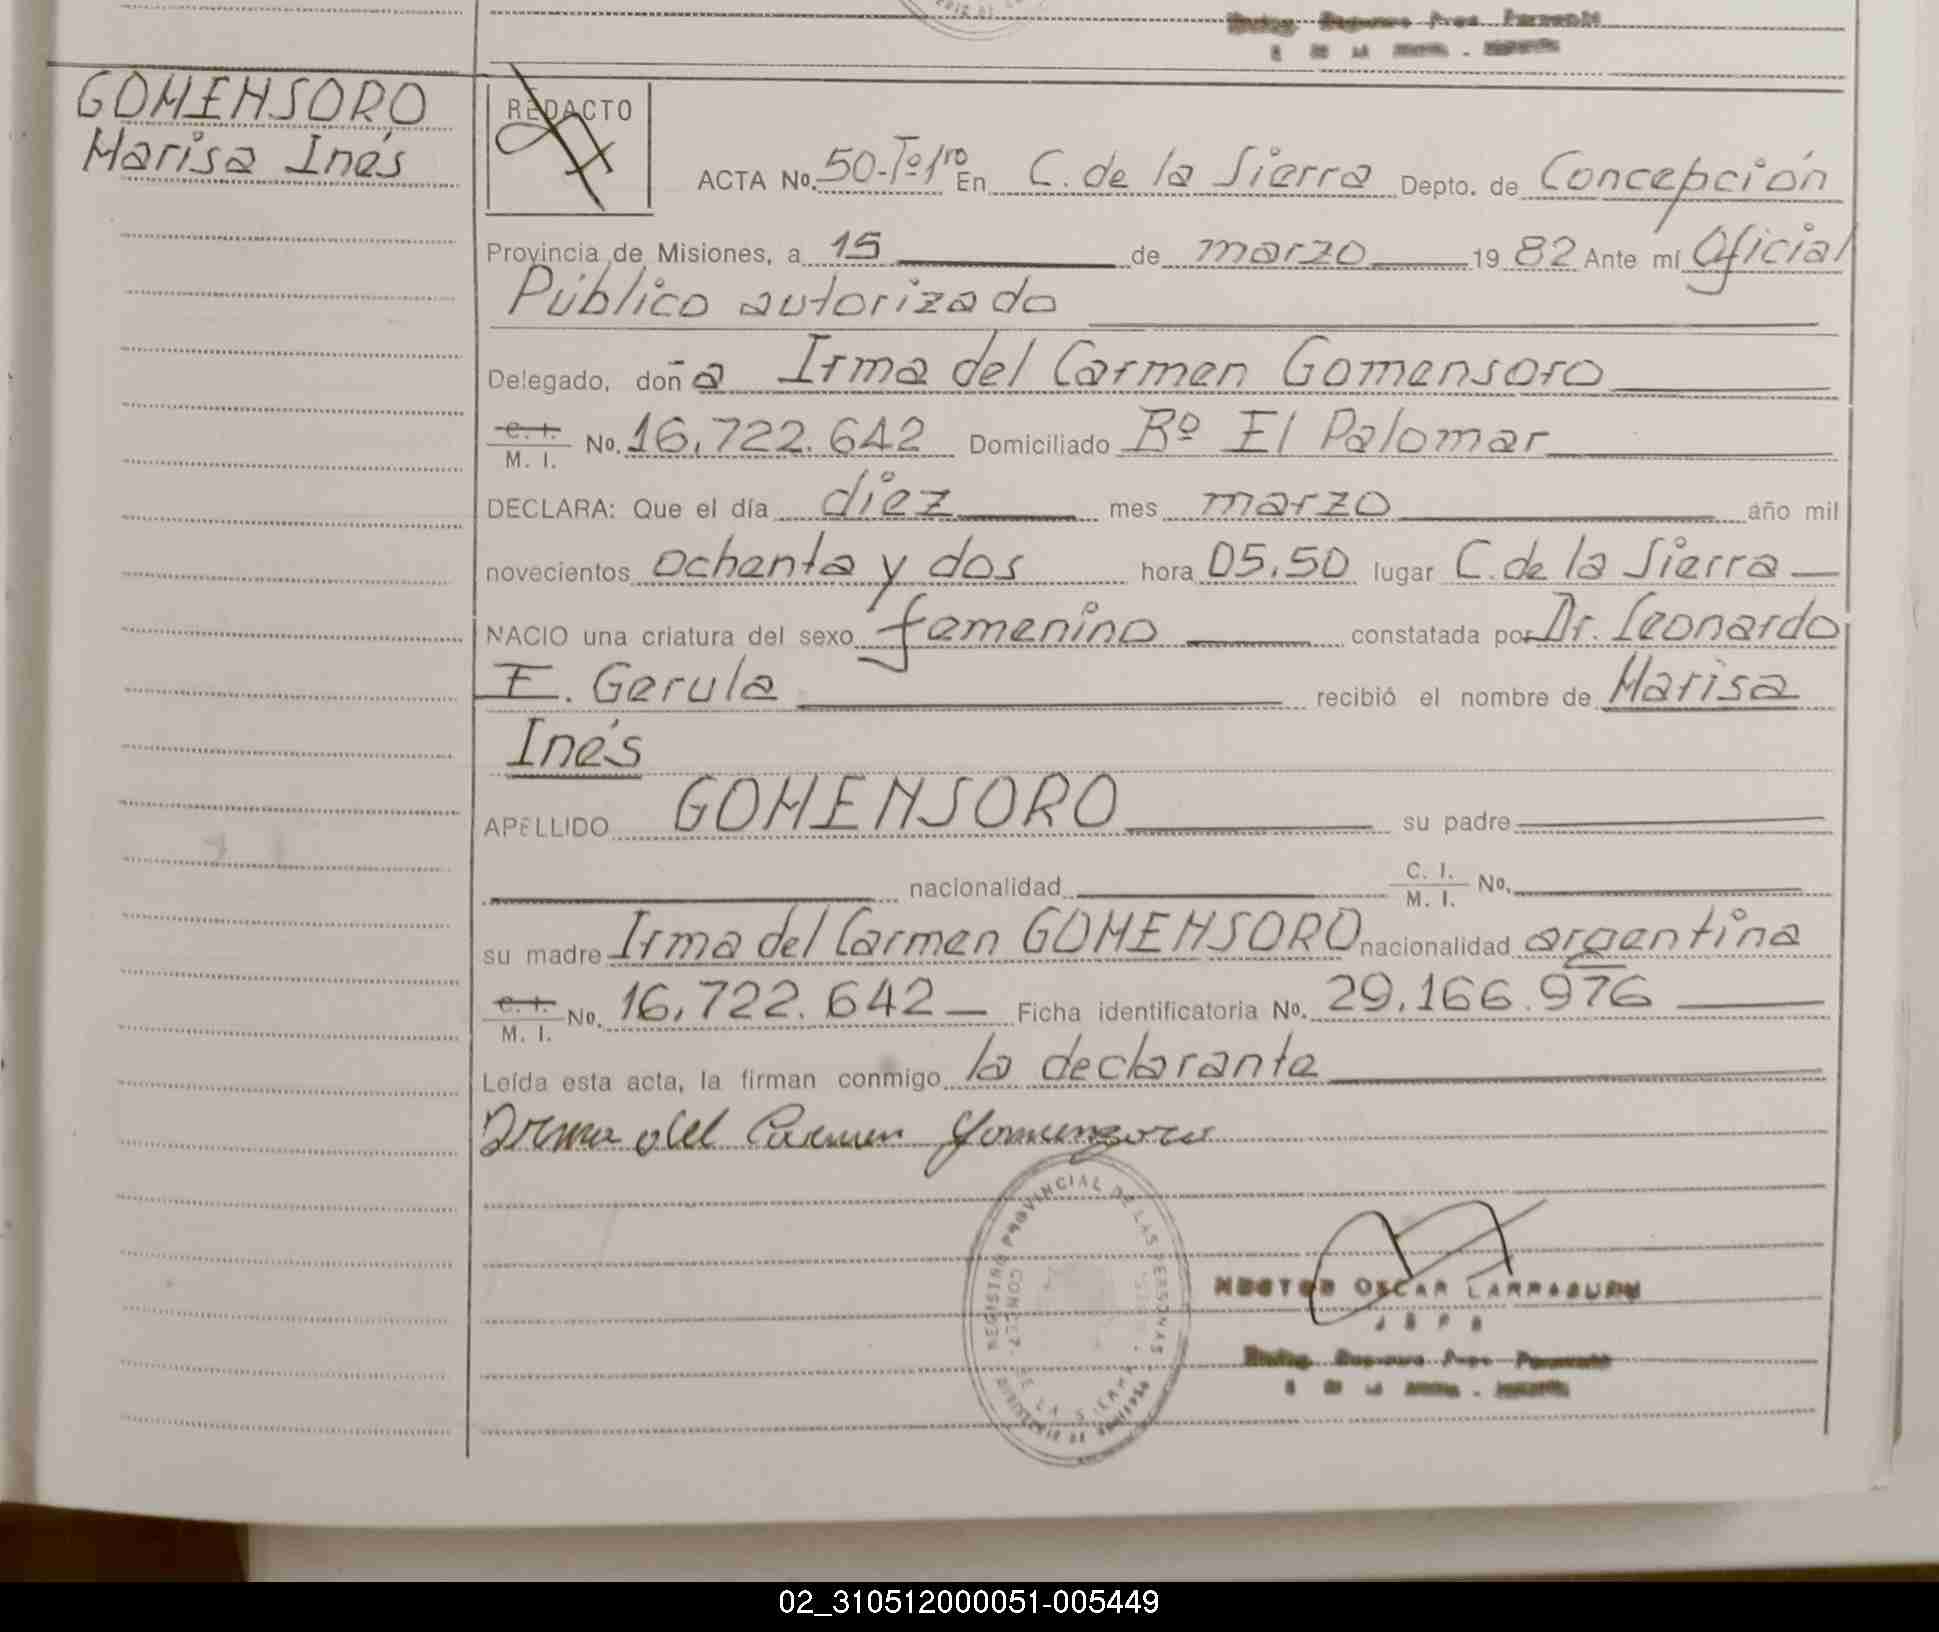 GOMENSORO
Marisa Inés
REDACTO
ACTA No. 50-Tº1ro En C. de la Sierra Depto. de Concepción
Provincia de Misiones, a 15 de marzo 19 82 Ante mí Oficial
Público autorizado
Delegado, doña Irma del Carmen Gomensoro
C. I. M. I. No. 16.722.642 Domiciliado Bº El Palomar
DECLARA: Que el día diez mes marzo año mil
novecientos ochenta y dos hora 05,50 lugar C. de la Sierra
NACIO una criatura del sexo femenino constatada por Dr. Leonardo
F. Gerula recibió el nombre de Marisa
Inés
APELLIDO GOMENSORO su padre
nacionalidad C. I. M. I. No.
su madre Irma del Carmen GOMENSORO nacionalidad argentina
C. I. M. I. No. 16.722.642 Ficha identificatoria No. 29.166.976
Leída esta acta, la firman conmigo la declarante
Irma del Carmen Gomensoro
REGISTRO PROVINCIAL DE LAS PERSONAS
DE LA SIERRA
MINISTERIO DE GOBIERNO
HECTOR OSCAR LARRABURU
02_310512000051-005449